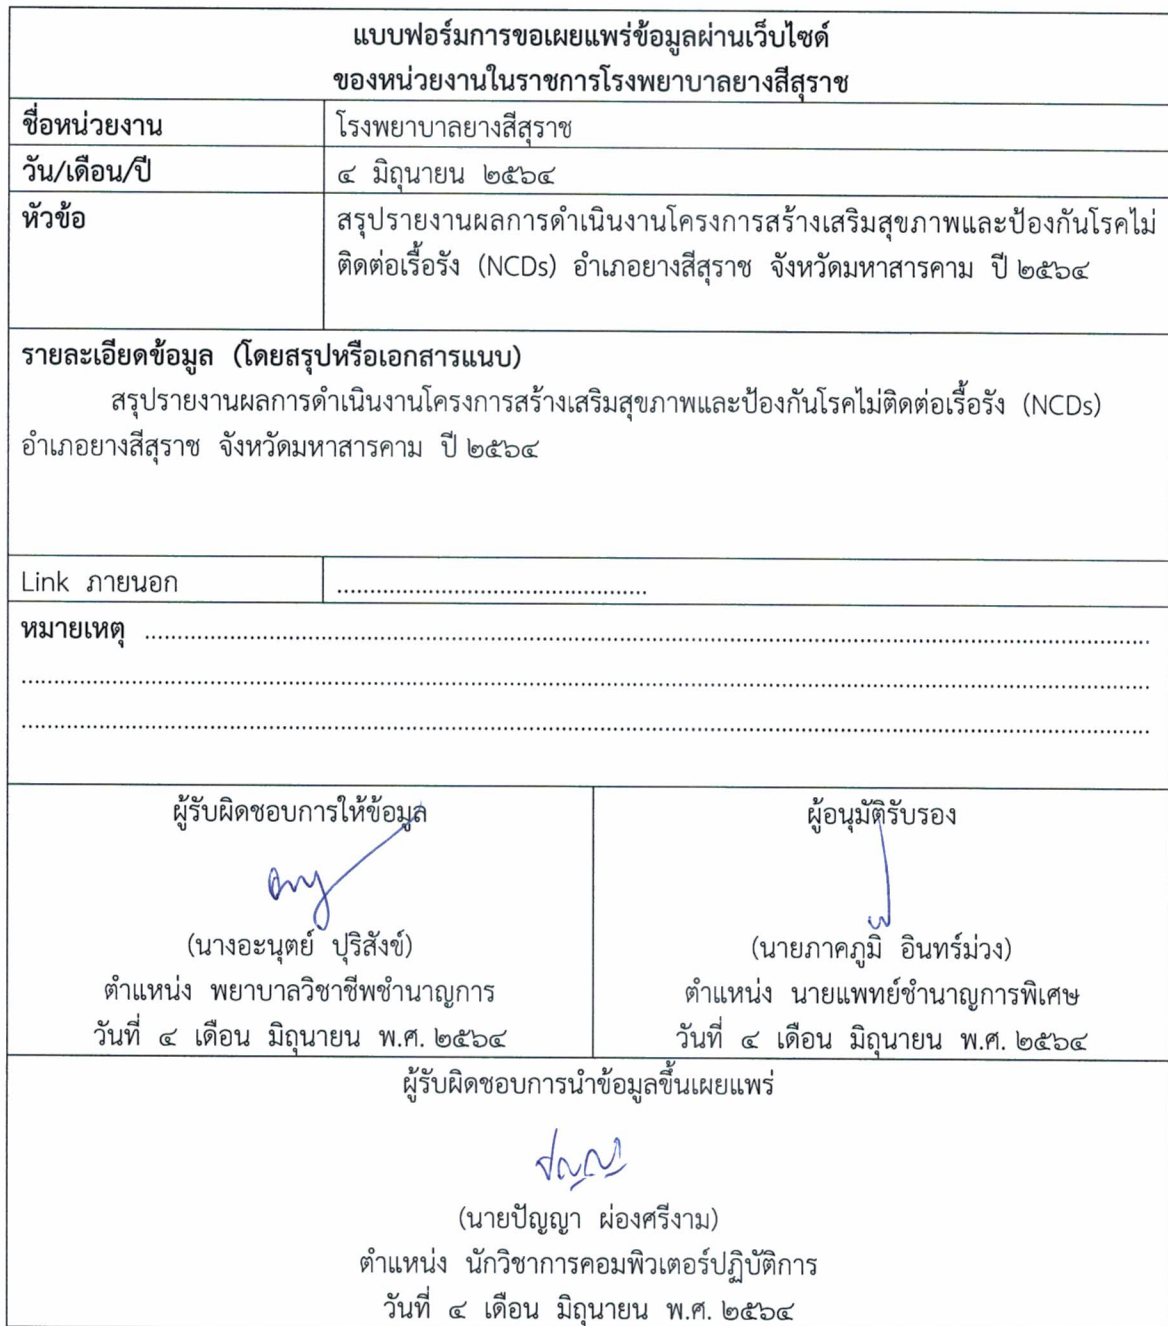 แบบฟอร์มการขอเผยแพร่ข้อมูลผ่านเว็บไซต์
ของหน่วยงานในราชการโรงพยาบาลยางสีสุราช
ชื่อหน่วยงาน โรงพยาบาลยางสีสุราช
วัน/เดือน/ปี ๔ มิถุนายน ๒๕๖๔
หัวข้อ สรุปรายงานผลการดำเนินงานโครงการสร้างเสริมสุขภาพและป้องกันโรคไม่
ติดต่อเรื้อรัง (NCDs) อำเภอยางสีสุราช จังหวัดมหาสารคาม ปี ๒๕๖๔
รายละเอียดข้อมูล (โดยสรุปหรือเอกสารแนบ)
สรุปรายงานผลการดำเนินงานโครงการสร้างเสริมสุขภาพและป้องกันโรคไม่ติดต่อเรื้อรัง (NCDs)
อำเภอยางสีสุราช จังหวัดมหาสารคาม ปี ๒๕๖๔
Link ภายนอก ................................................
หมายเหตุ ................................................................................
................................................................................
................................................................................
ผู้รับผิดชอบการให้ข้อมูล
(นางอะนุตย์ ปุริสังข์)
ตำแหน่ง พยาบาลวิชาชีพชำนาญการ
วันที่ ๔ เดือน มิถุนายน พ.ศ. ๒๕๖๔
ผู้อนุมัติรับรอง
(นายภาคภูมิ อินทร์ม่วง)
ตำแหน่ง นายแพทย์ชำนาญการพิเศษ
วันที่ ๔ เดือน มิถุนายน พ.ศ. ๒๕๖๔
ผู้รับผิดชอบการนำข้อมูลขึ้นเผยแพร่
ปัญญา
(นายปัญญา ผ่องศรีงาม)
ตำแหน่ง นักวิชาการคอมพิวเตอร์ปฏิบัติการ
วันที่ ๔ เดือน มิถุนายน พ.ศ. ๒๕๖๔